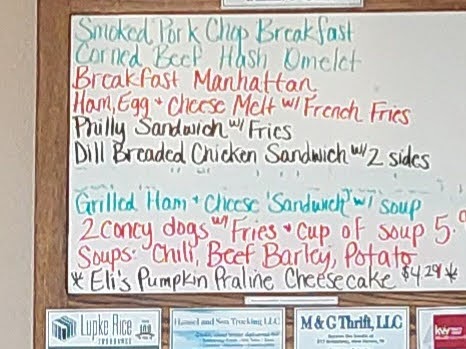 Smoked Pork Chop Breakfast
Corned Beef Hash Omelet
Breakfast Manhattan
Ham, Egg + Cheese Melt w/ French Fries
Philly Sandwich w/ Fries
Dill Breaded Chicken Sandwich w/ 2 sides
Grilled Ham + Cheese Sandwich w/ soup
2 coney dogs w/ Fries + cup of soup 5.
Soups: Chili, Beef Barley, Potato
* Eli's Pumpkin Praline Cheesecake $4.29 *
Lupke Rice
INSURANCE
Hansel and Son Trucking LLC
M & G Thrift, LLC
kw